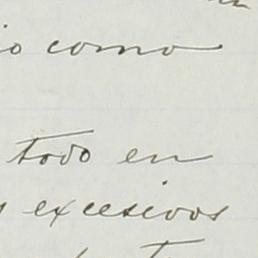 como
todo en
excesivos